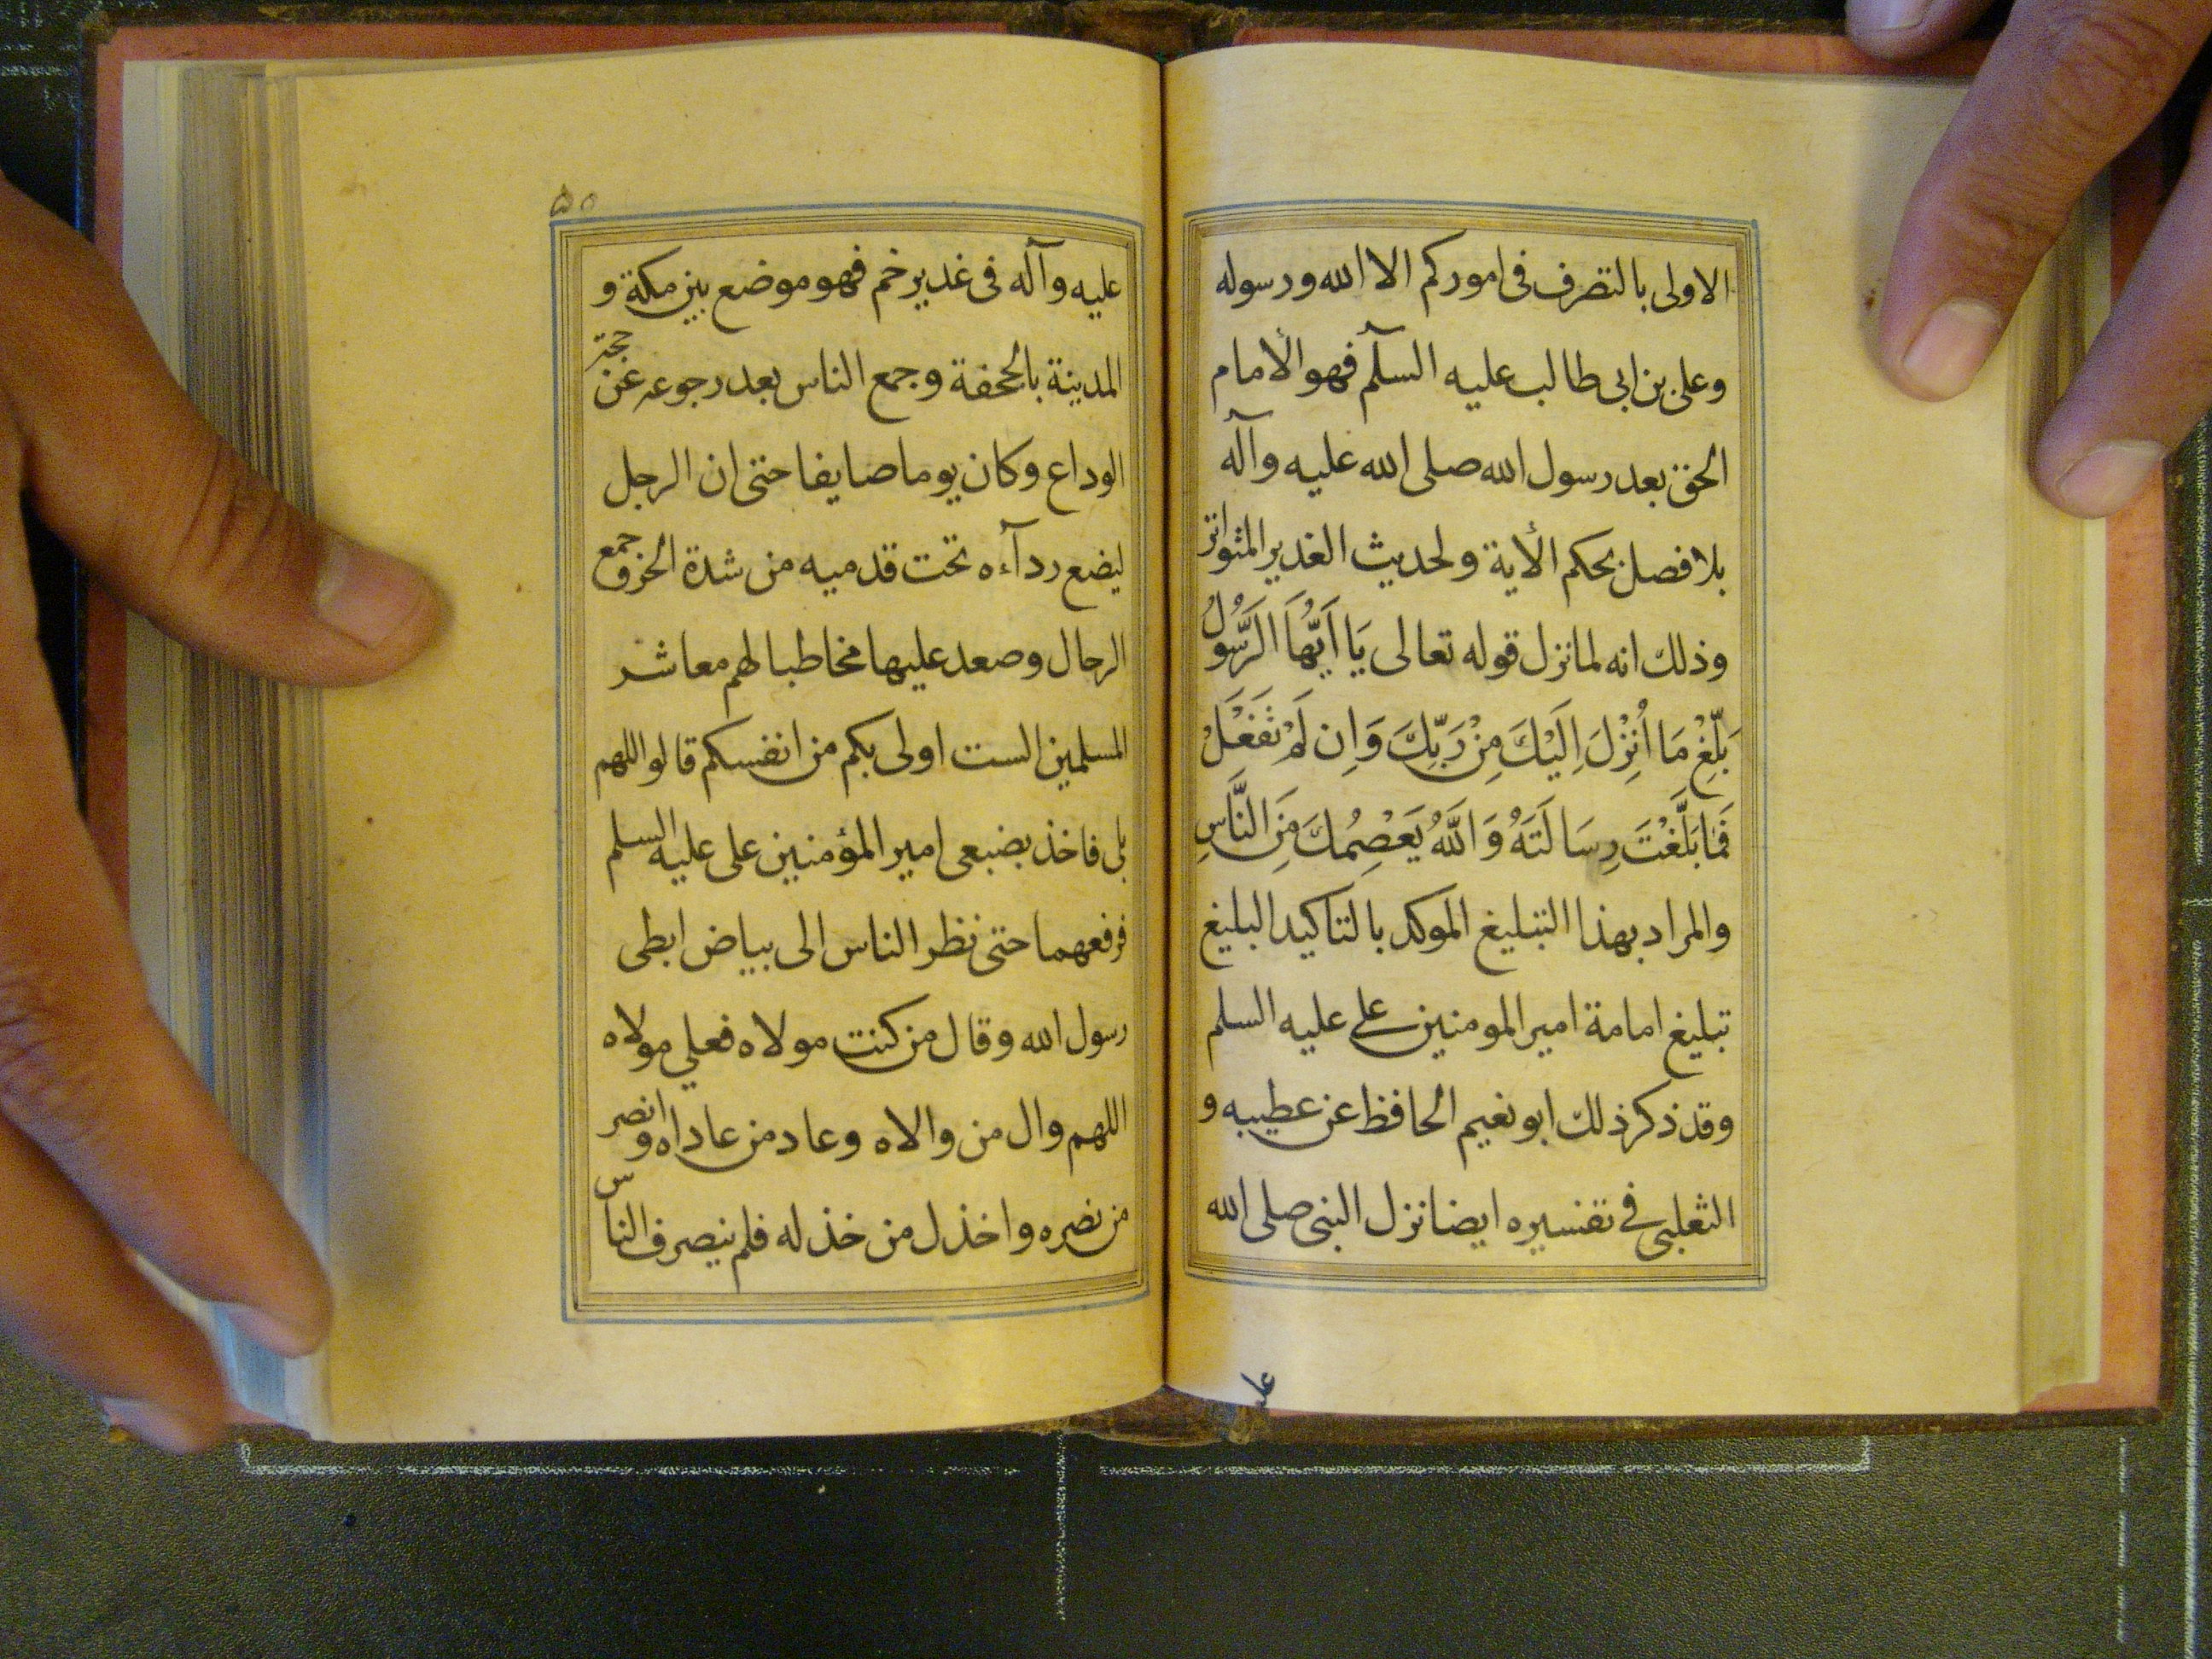 الاولى بالتصرف فى اموركم الا الله ورسوله
وعلى بن ابى طالب عليه السلٓم فهو الأمام
الحق بعد رسول الله صلى الله عليه وآله
بلا فصل بحكم الأية ولحديث الغدير المتواتر
وذلك انه لما نزل قوله تعالى يَا اَيُّهَا الرَّسُولُ
بَلِّغْ مَا اُنْزِلَ اِلَيْكَ مِنْ رَبِّكَ وَاِن لَمْ تَفْعَلْ
فَمَا بَلَّغْتَ رِسَالَتَهُ وَاللّٰهُ يَعْصِمُكَ مِنَ النَّاسِ
والمراد بهذا التبليغ الموكد بالتاكيد البليغ
تبليغ امامة امير المومنين على عليه السلم
وقد ذكر ذلك ابو نعيم الحافظ عن عطيبه و
الثعلبى فى تفسيره ايضا نزل النبى صلى الله
عليه
۵۰
عليه وآله فى غدير خم فهو موضع بين مكة و
المدينة بالجحفة وجمع الناس بعد رجوعه عن حجة
الوداع وكان يوما صايفا حتى ان الرجل
ليضع ردآءه تحت قدميه من شدة الحر وجمع
الرحال وصعد عليها مخاطبا لهم معاشر
المسلمين الست اولى بكم من انفسكم قالوا اللهم
بلى فاخذ بضبعى امير المؤمنين على عليه السلم
فرفعهما حتى نظر الناس الى بياض ابطى
رسول الله وقال من كنت مولاه فعلي مولاه
اللهم وال من والاه وعاد من عاداه وانصر
من نصره واخذل من خذله فلم ينصرف الناس